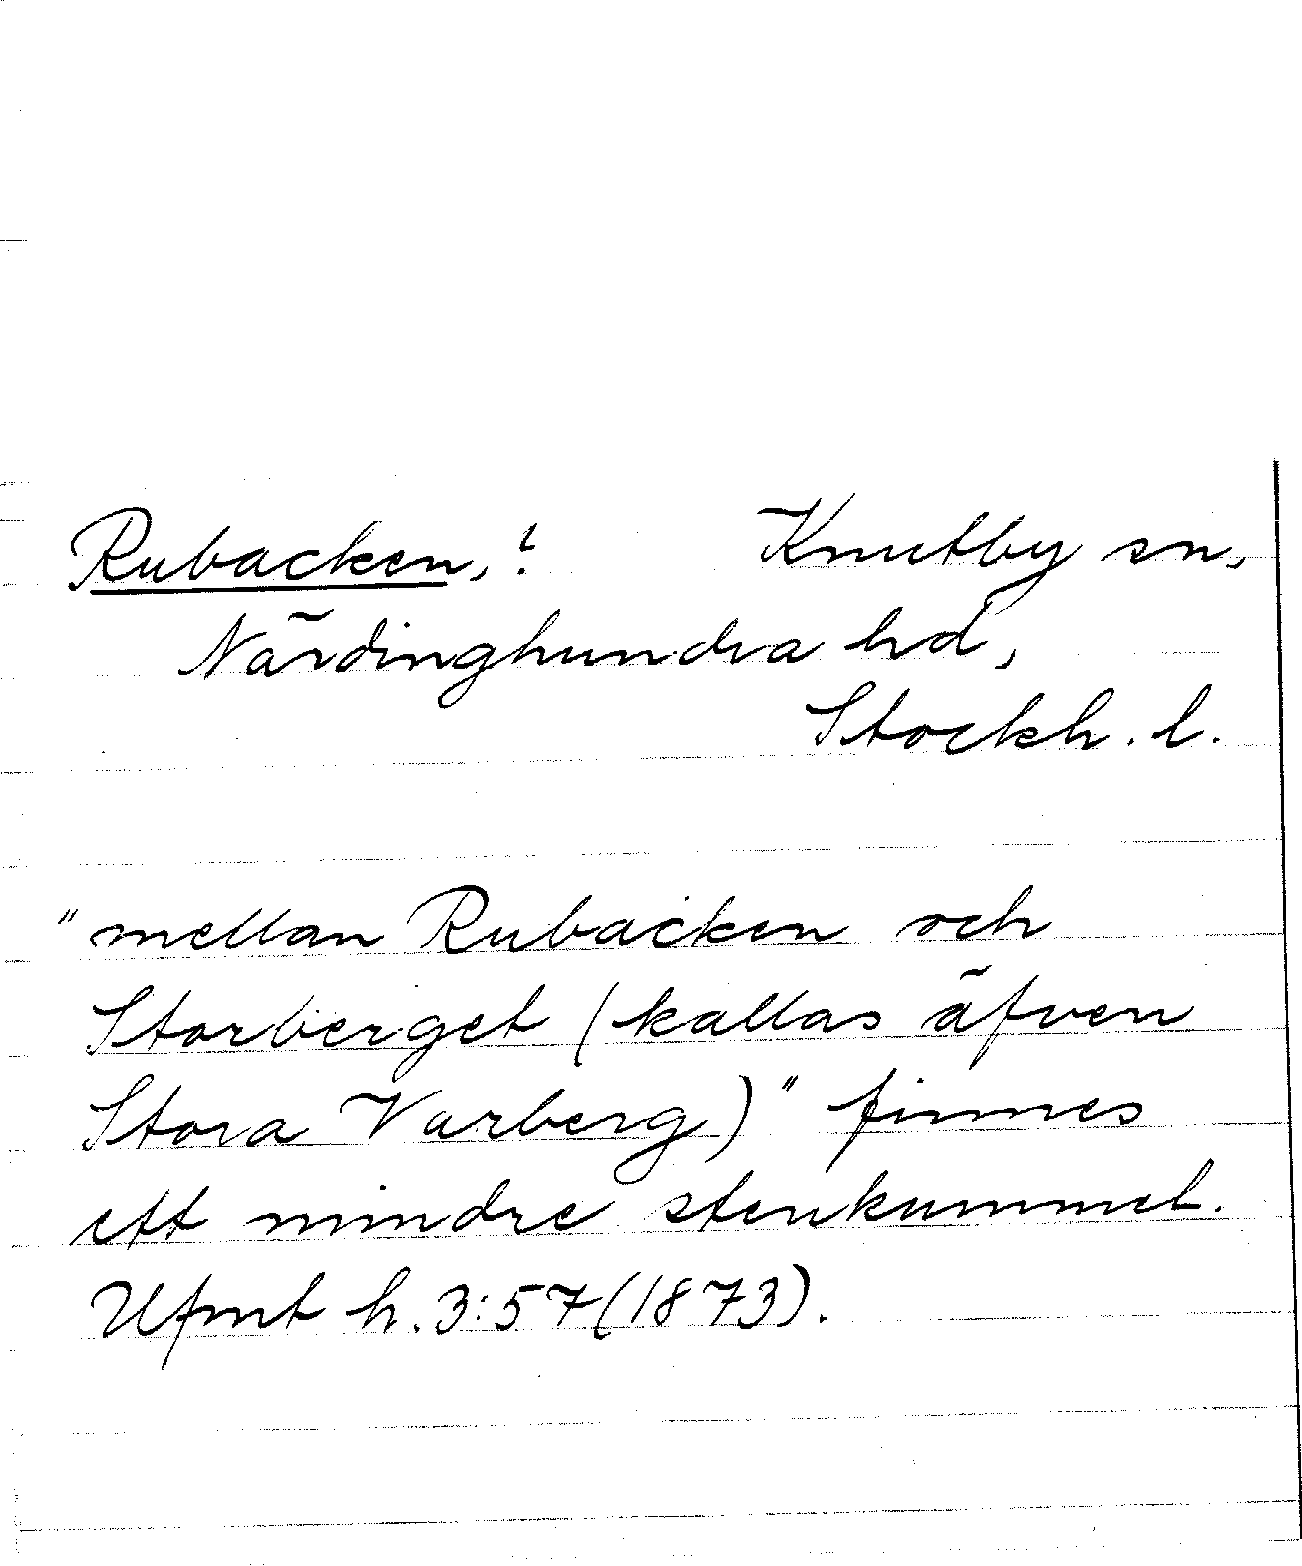 Rubacken, ? Knutby sn,
Närdinghundra hd,
Stockh. l.
"mellan Rubacken och
Storberget (kallas äfven
Stora Varberg)" finnes
ett mindre stenkummel.
Ufmt h. 3:57 (1873).